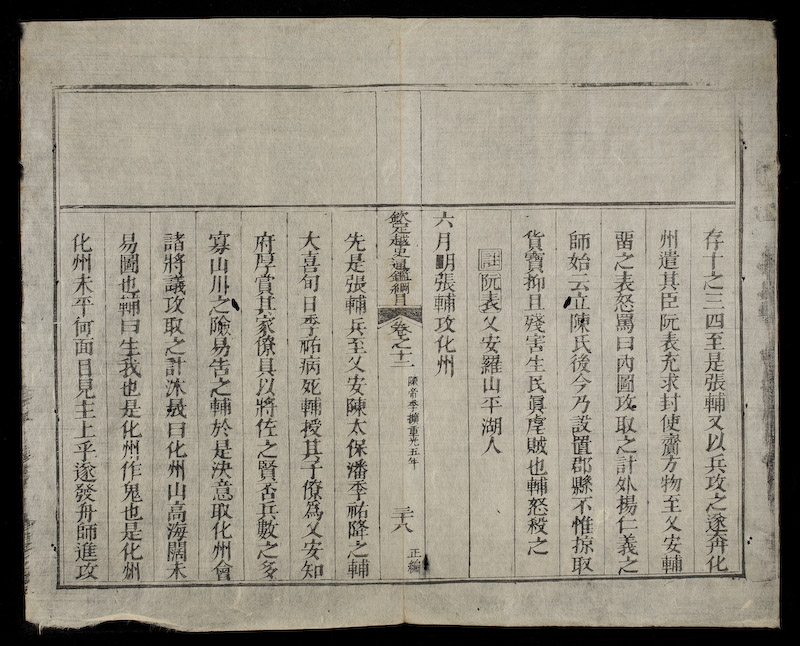 存十之三四至是張輔又以兵攻之遂奔化
州遣其臣阮表充求封使齎方物至乂安輔
畱之表怒罵曰内圖攻取之計外揚仁義之
師始云立陳氏後今乃設置郡縣不惟掠取
貨寶抑且殘害生民眞虐賊也輔怒殺之
註阮表乂安羅山平湖人
六月明張輔攻化州
欽定越史通鑑綱目 卷之十二 陳帝季擴重光五年 三十八 正編
先是張輔兵至乂安陳太保潘季祐降之輔
大喜旬日季祐病死輔授其子僚為乂安知
府厚賞其家僚具以將佐之賢否兵數之多
寡山川之險易告之輔於是決意取化州會
諸將議攻取之計沐晟曰化州山高海闊未
易圖也輔曰生我也是化州作鬼也是化州
化州未平何面目見主上乎遂發舟師進攻